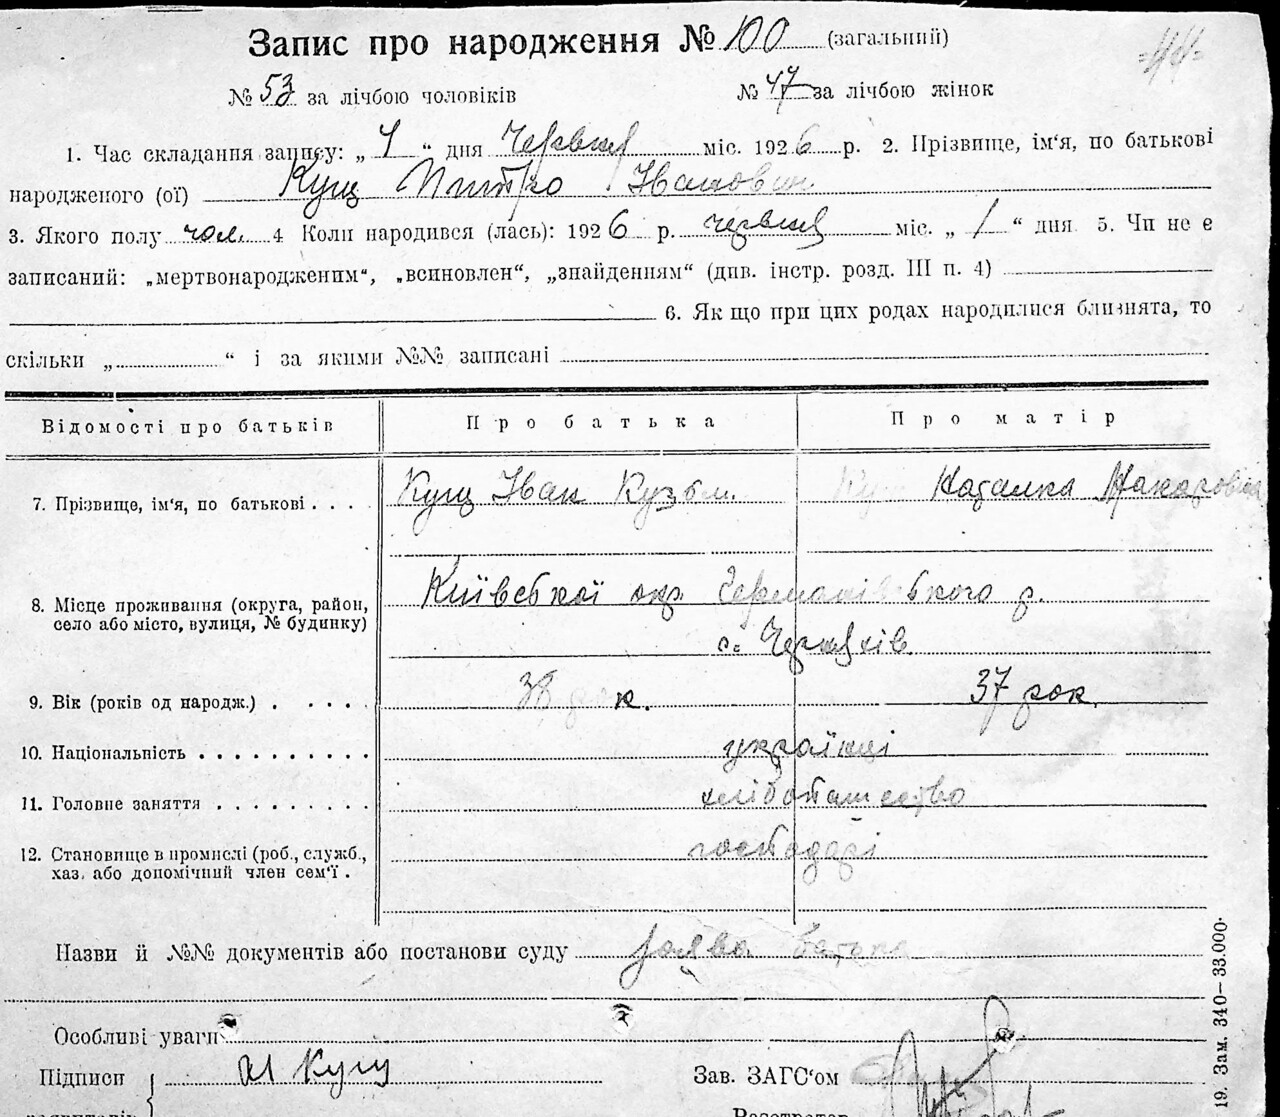 =44=
Запис про народження № 100 (загальний)
№ 53 за лічбою чоловіків № 47 за лічбою жінок
1. Час складання запису: „ 4 “ дня Червня міс. 1926 р. 2. Прізвище, ім‘я, по батькові
народженого (ої) Кущ Питро Іванович
3. Якого полу чол. 4 Коли народився (лась): 1926 р. червня міс. „ 1 “ дня 5. Чи не є
записаний: „мертвонародженим“, „всиновлен“, „знайденням“ (див. інстр. розд. III п. 4)
6. Як що при цих родах народилися близнята, то
скільки „ “ і за якими №№ записані
Відомості про батьків Про батька Про матір
7. Прізвище, ім‘я, по батькові . . . . Кущ Іван Кузьм. Кущ Наталка Макаровна
8. Місце проживання (округа, район, Київської окр. Германівського р.
село або місто, вулиця, № будинку) с. Черняхів
9. Вік (років од народж.) . . . . . 38 рок. 37 рок.
10. Національність . . . . . . . . . . українці
11. Головне заняття . . . . . . . . . хліборобство
12. Становище в промислі (роб., служб., господарі
хаз. або допомічний член сем‘ї .
Назви й №№ документів або постанови суду заява батька
Особливі уваги
Підписи И Кущ Зав. ЗАГС‘ом
заявителів Реєстратор
19. Зам. 340—33.000.